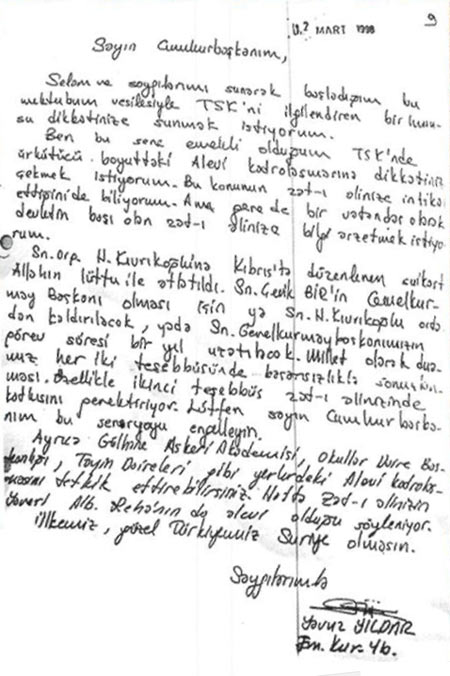 9
0.2 MART 1998
Sayın Cumhurbaşkanım,
Selam ve saygılarımı sunarak başladığım bu
mektubum vesilesiyle TSK'ni ilgilendiren bir husu-
su dikkatinize sunmak istiyorum.
Ben bu sene emekli olduğum TSK'nde
ürkütücü boyuttaki Alevi kadrolaşmasına dikkatinizi
çekmek istiyorum. Bu konunun zat-ı alinize intikal
ettiğini de biliyorum. Ama gene de bir vatandaş olarak
devletin başı olan zat-ı alinize bilgi arzetmek istiyo-
rum.
Sn. Orp. H. Kıvrıkoğluna Kıbrıs'ta düzenlenen suikast
Allahın lütfu ile atlatıldı. Sn. Çevik BİR'in Genelkur-
may Başkanı olması için ya Sn. H. Kıvrıkoğlu orta
dan kaldırılacak, yada Sn. Genelkurmay başkanımızın
görev süresi bir yıl uzatılacak. Millet olarak dua-
mız her iki teşebbüsünde başarısızlıkla sonuçlan-
ması. Özellikle ikinci teşebbüs zat-ı alinizinde
katkısını gerektiriyor. Lütfen sayın Cumhurbaşka-
nım bu senaryoyu engelleyin.
Ayrıca Gülhane Askeri Akademisi, okullar Daire Baş-
kanlığı, Tayin Daireleri gibi yerlerdeki Alevi kadrolaş-
masını tetkik ettirebilirsiniz. Hatta zat-ı alinizin
Yaveri Alb. Reha'nın da alevi olduğu söyleniyor.
Ülkemiz, güzel Türkiyemiz Suriye olmasın.
Saygılarımla
Yavuz YILDAR
Em. Kur. Yb.